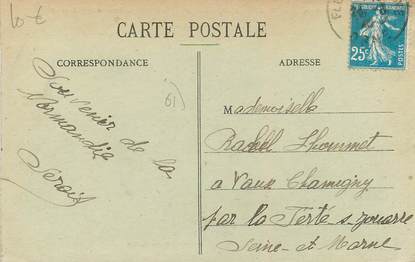 10 €
CARTE POSTALE
CORRESPONDANCE
ADRESSE
FLE
25c
POSTES
61
Souvenir de la
Normandie
Mademoiselle
Rachel Lhommet
a Vaux Chamigny
par la Ferté s-jouarre
Seine-et Marne